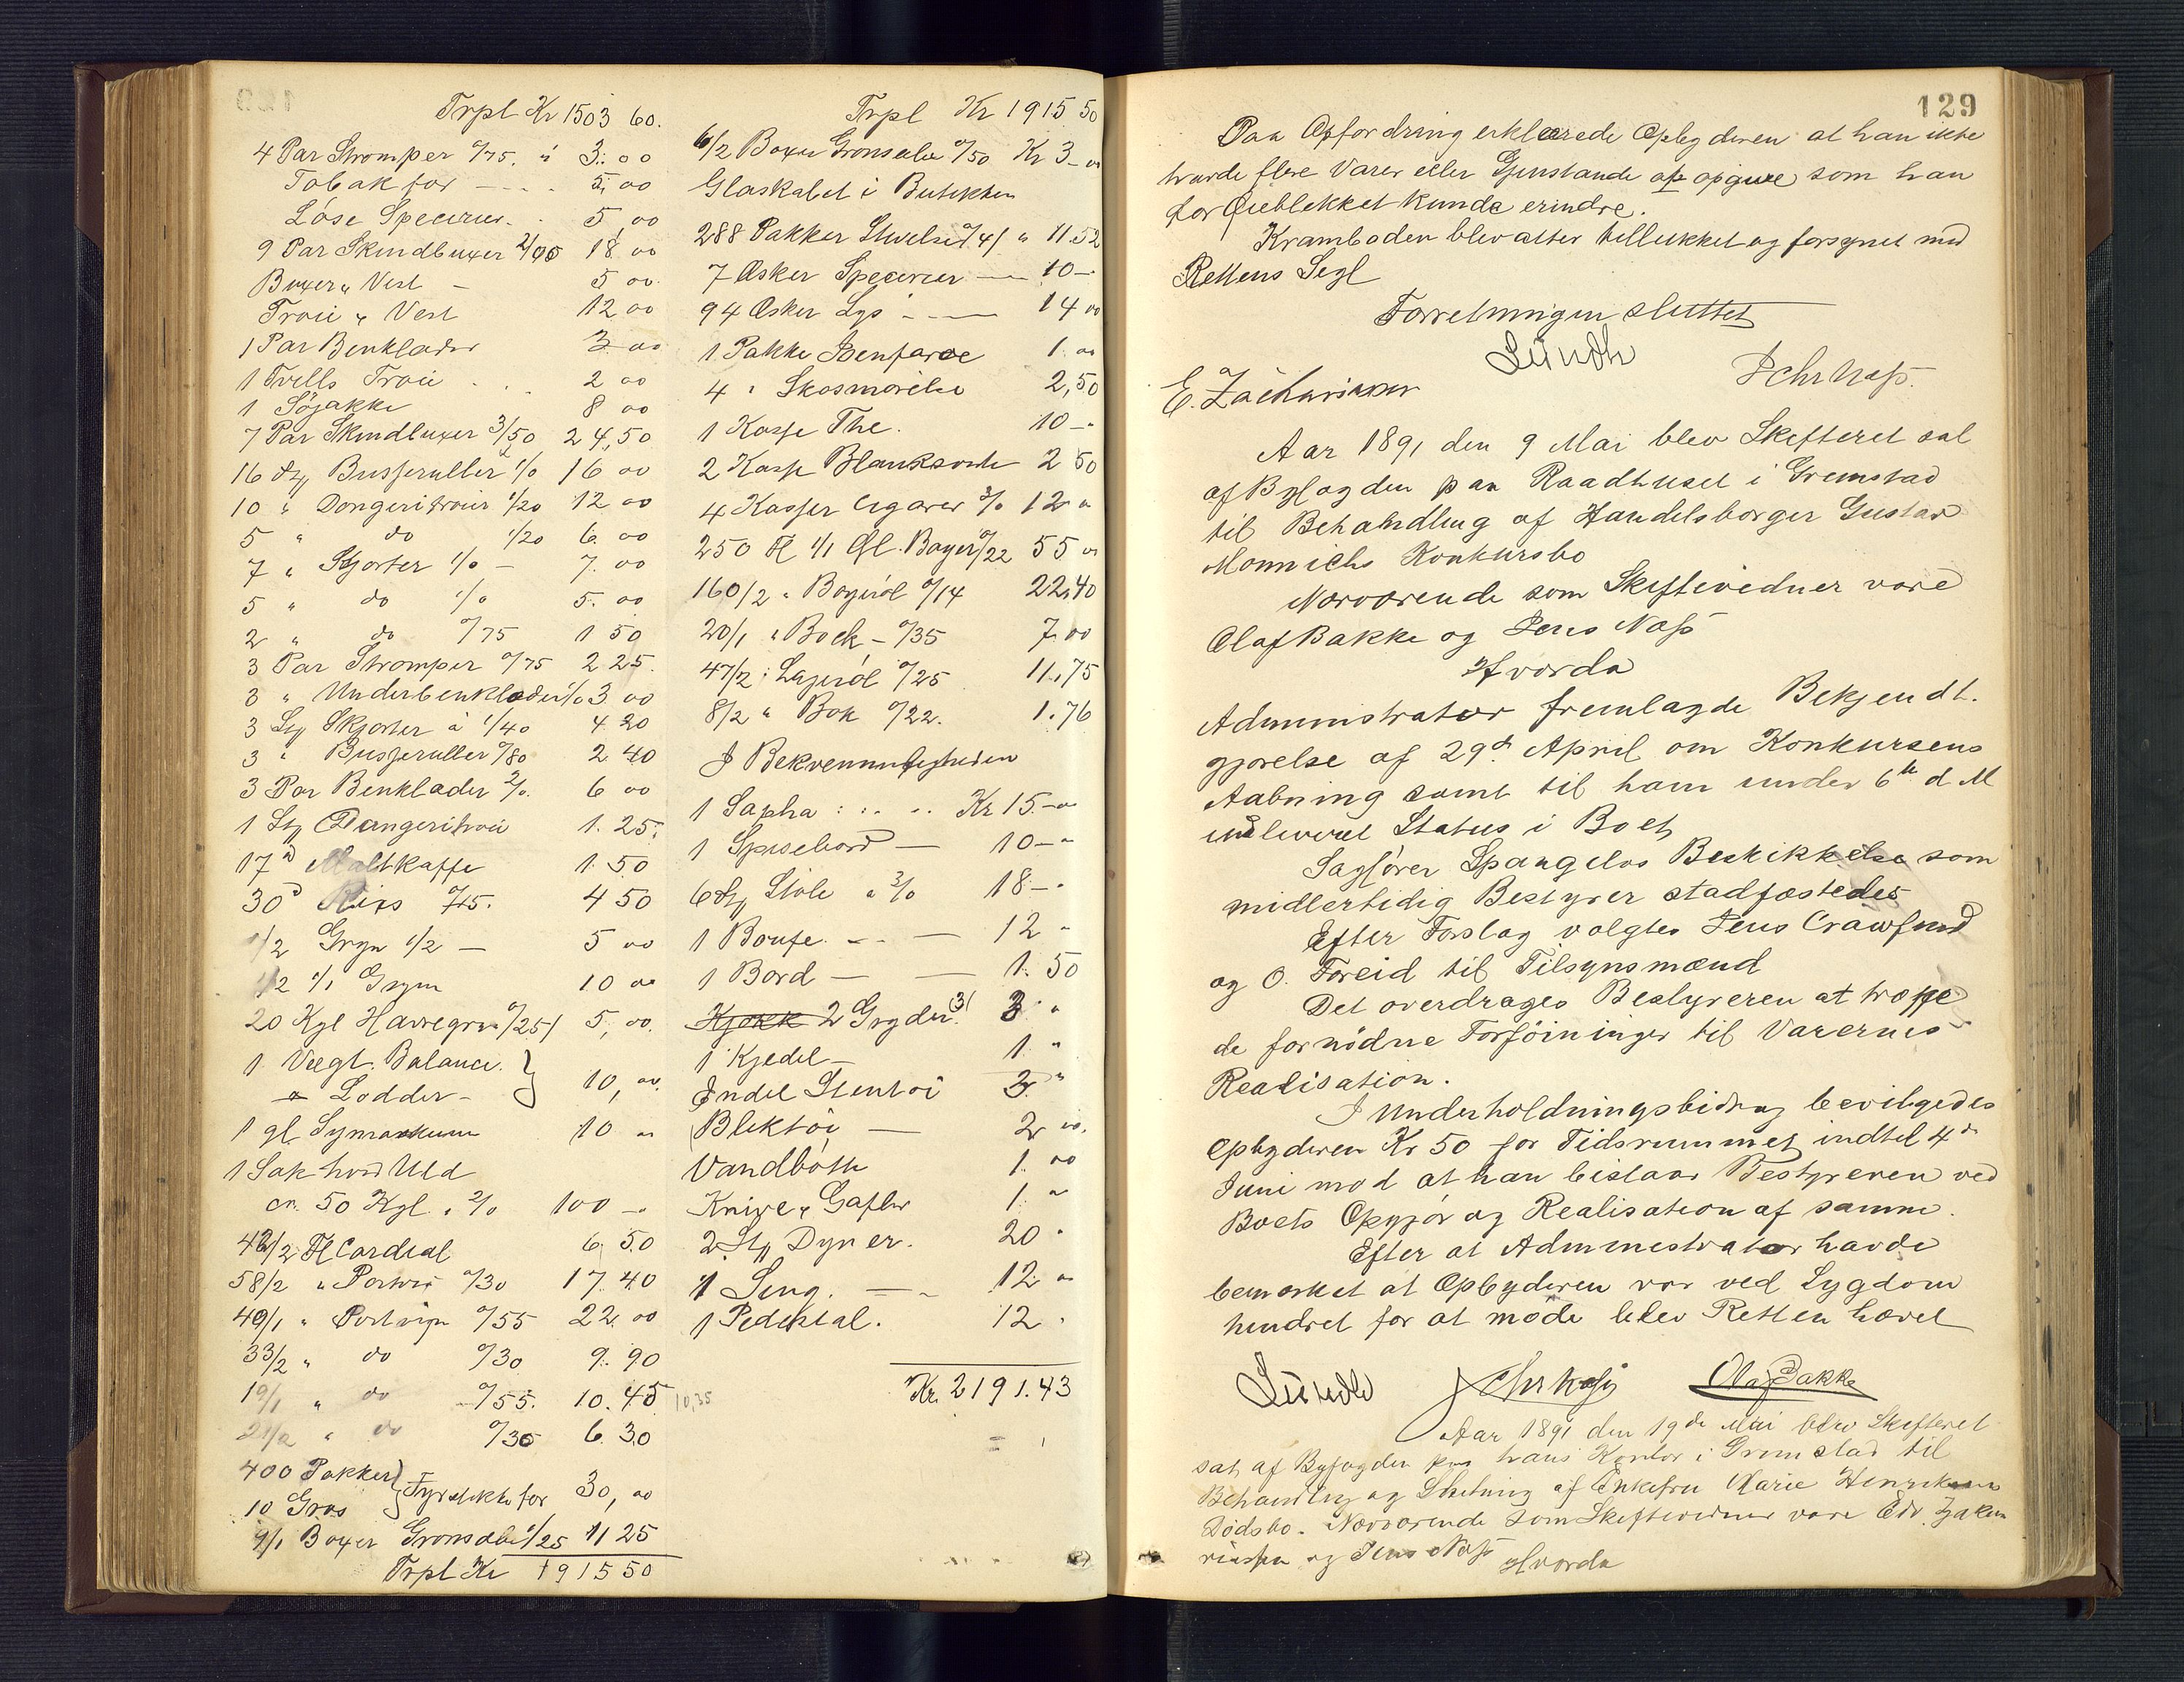 Trpl Kr 1503 60.
4 Par Strømper 0/75. a 3. 00
Tobak for - - - 5, 00
Löse Specerier. . 5, 00
9 Par Skindbuxer 2/00 18. 00
Buxer & Vest - 5 00.
Troie & Vest 12 00
1 Par Benklæder 3 00
1 Trells Troie . . 2 00
1 Söjakke 8 00
7 Par Skindbuxer 3/50 24,50
16 Stz Busseruller 1/0 16 00
10 " Dongeritroier 1/20 12 00
5 " do 1/20 6. 00
7 " Skjorter 1/0 - 7. 00
5 " do 1/0 5. 00
2 " do 0/75 1 50
3 Par Strømper 0/75 2 25.
3 " Underbenklæder 1/0 3 00
3 Stz Skjorter à 1/40 4 20
3 " Busseruller 0/80 2 40
3 Par Benklæder 2/0. 6 00
1 Stz Dangeritroie 1. 25.
17 Maltkaffe 1. 50
30 Riis 0/15. 4 50
1/2 Gryn 1/2 - 5 00
1/2 1/1 Gryn 10 00
20 Kgl Havregryn 0/25 5, 00.
1 Vægt. Balance. }
& Lodder - 10, 00.
1 gl Symaskine 10 00
1 Sæk hvid Uld
ca. 50 Kgl. a 2/0 100 -
42/2 Fl Cordial 6. 50
58/2 " Portvin 0/30 17. 40
40/1 " Portvin 0/55 22. 00
33/2 " do 0/30 9. 90
19/1 " do 0/55. 10. 45 10,35
21/2 " do 0/30 6. 30
400 Pakker }
10 Gros } Fyrstikker for 30, 00
9/1 Boxer Grönsaber 1/25 11 25
Trpl Kr 1915 50
Trpl Kr 1915 50
6/2 Boxer Grönsaber 0/50 Kr 3 - 00
Glaskabet i Butikken
288 Pakker Stivelse 0/4 " 11.52
7 Æsker Specerier - 10 -
94 Æsker Lys - - 14 00
1 Pakke Benfarve 1. 00
4 " Skosmørelse 2,50
1 Kasse The. 10 -
2 Kasse Blanksværte 2 50
4 Kasser Cigarer 3/0 12 "
250 Fl 1/1 Öl. Bayer 0/22 55 00
160/2 " Bayeröl 0/14 22.40
20/1 " Bock - 0/35 7. 00
47/2 " Lageröl 0/25 11.75
8/2 " Bok 0/22. 1.76
I Bekvemmeligheden
1 Sapha : . . . . Kr 15. - 00
1 Spisebord - 10 - "
6 Stz Stole a 3/0 18 - "
1 Boufe. - - - 12 "
1 Bord - - 1. 50
Kjøkk 2 Gryder 3 "
1 Kjedel - 1. "
Endel Stentøi 3. "
Bliktøi - 2 00.
Vandbøtte 1. 00
Knive & Gafler 1. "
2 Stz Dyner. 20 "
1 Seng. - - 12. 00
1 Pedestal. 12 "
Kr. 2191.43
129
Paa Opfordring erklærede Opbyderen at han ikke
havde flere Varer eller Gjenstande at opgive som han
for Øieblikket kunde erindre.
Kramboden blev atter tillukket og forsynet med
Rettens Segl
Forretningen sluttet
Lundh
E. Zachariassen J Chr Næss.
Aar 1891 den 9 Mai blev Skifteret sat
af Byfogden paa Raadhuset i Grimstad
til Behandling af Handelsborger Gustav
Monnichs Konkursbo
Nærværende som Skiftevidner vare
Olaf Bakke og Jens Næss
Hvorda
Administrator fremlagde Bekjendt.
gjørelse af 29de April om Konkursens
Aabning samt til ham under 6te d M
indleveret Status i Boet
Sagfører Spangelos Beskikkelse som
midlertidig Bestyrer stadfæstedes
Efter Forslag valgtes Jens Crawfurd
og O. Foreid til Tilsynsmænd
Det overdrages Bestyreren at træffe
de fornødne Forføininger til Varernes
Realisation.
I Underholdningsbidrag bevilgedes
Opbyderen Kr 50 for Tidsrummet indtil 4de
Juni mod at han bistaar Bestyreren ved
Boets Opgjør og Realisation af samme.
Efter at Administrator havde
bemærket at Opbyderen var ved Sygdom
hindret for at møde blev Retten hævet
Lundh J Chr Næss Olaf Bakke
Aar 1891 den 19de Mai blev Skifteret
sat af Byfogden paa hans Kontor i Grimstad til
Behandling og Slutning af Enkefru Marie Henriksens
Dødsbo. Nærværende som Skiftevidner vare Edv. Zaka
riassen og Jens Næss
Hvorda